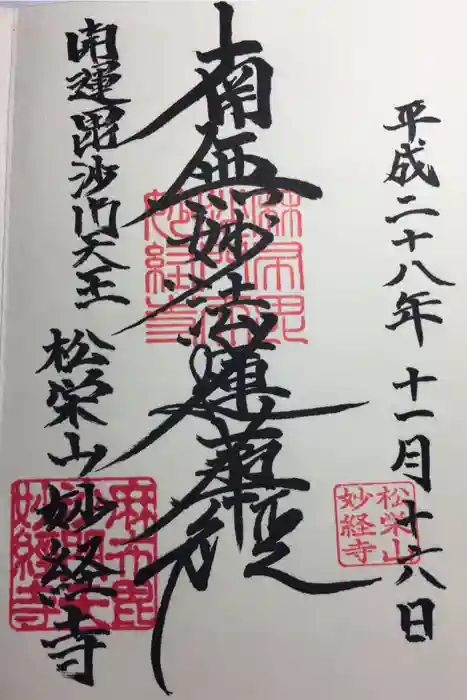 平成二十八年 十一月十六日
松栄山
妙経寺
南無妙法蓮華経
開運毘沙門天王
松栄山妙経寺
麻布毘
妙経寺